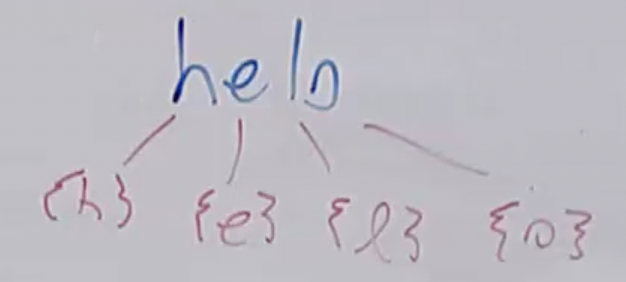 helo
{h} {e} {l} {o}